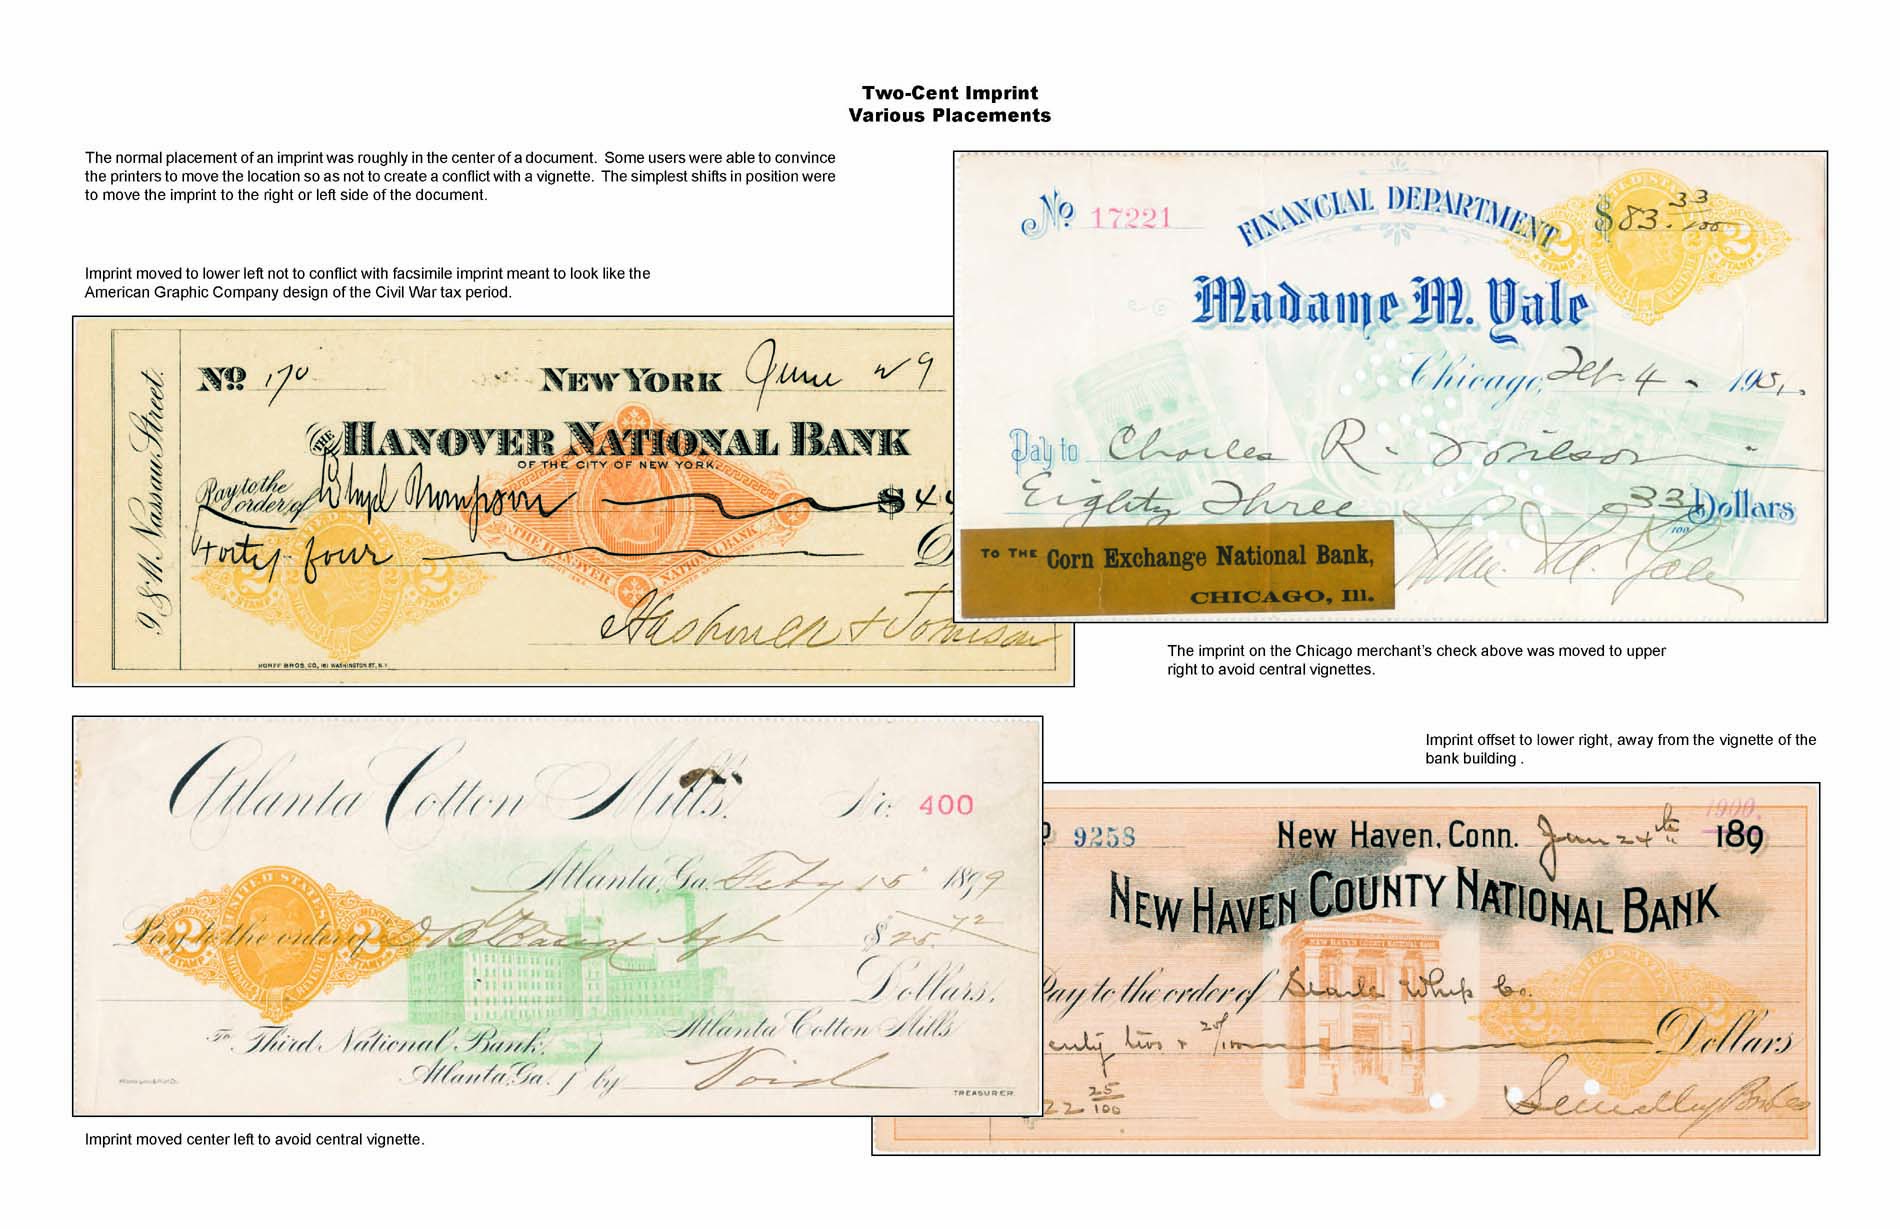 Two-Cent Imprint
Various Placements
The normal placement of an imprint was roughly in the center of a document. Some users were able to convince
the printers to move the location so as not to create a conflict with a vignette. The simplest shifts in position were
to move the imprint to the right or left side of the document.
Imprint moved to lower left not to conflict with facsimile imprint meant to look like the
American Graphic Company design of the Civil War tax period.
9 & 11 Nassau Street.
No. 170
NEW YORK June 29
THE HANOVER NATIONAL BANK
OF THE CITY OF NEW YORK.
Pay to the
order of Thompson $44
Forty four
2 STAMP 2 STAMP
THE HANOVER NATIONAL BANK
HORFF BROS. CO., 161 WASHINGTON ST., N.Y.
No. 17221
FINANCIAL DEPARTMENT
$83.33/100
2 STAMP 2 STAMP
Madame M. Yale
Chicago, Feb. 4 - 1901.
Pay to Charles R. Wilson
Eighty Three 33/100 Dollars
TO THE Corn Exchange National Bank,
CHICAGO, Ill.
Mme. M. Yale
The imprint on the Chicago merchant's check above was moved to upper
right to avoid central vignettes.
Atlanta Cotton Mills. No. 400
Atlanta, Ga. Feby 15" 1899
UNITED STATES
2 STAMP 2 STAMP
Pay to the order of
$25.72
Dollars.
To Third National Bank,
Atlanta, Ga.
Atlanta Cotton Mills
by Void
TREASURER
Imprint moved center left to avoid central vignette.
Imprint offset to lower right, away from the vignette of the
bank building .
9258 New Haven, Conn. Jan 24th 189
1900.
NEW HAVEN COUNTY NATIONAL BANK
NEW HAVEN COUNTY NATIONAL BANK
Pay to the order of Searle Whip Co.
enty two & 25/100 Dollars
22 25/100